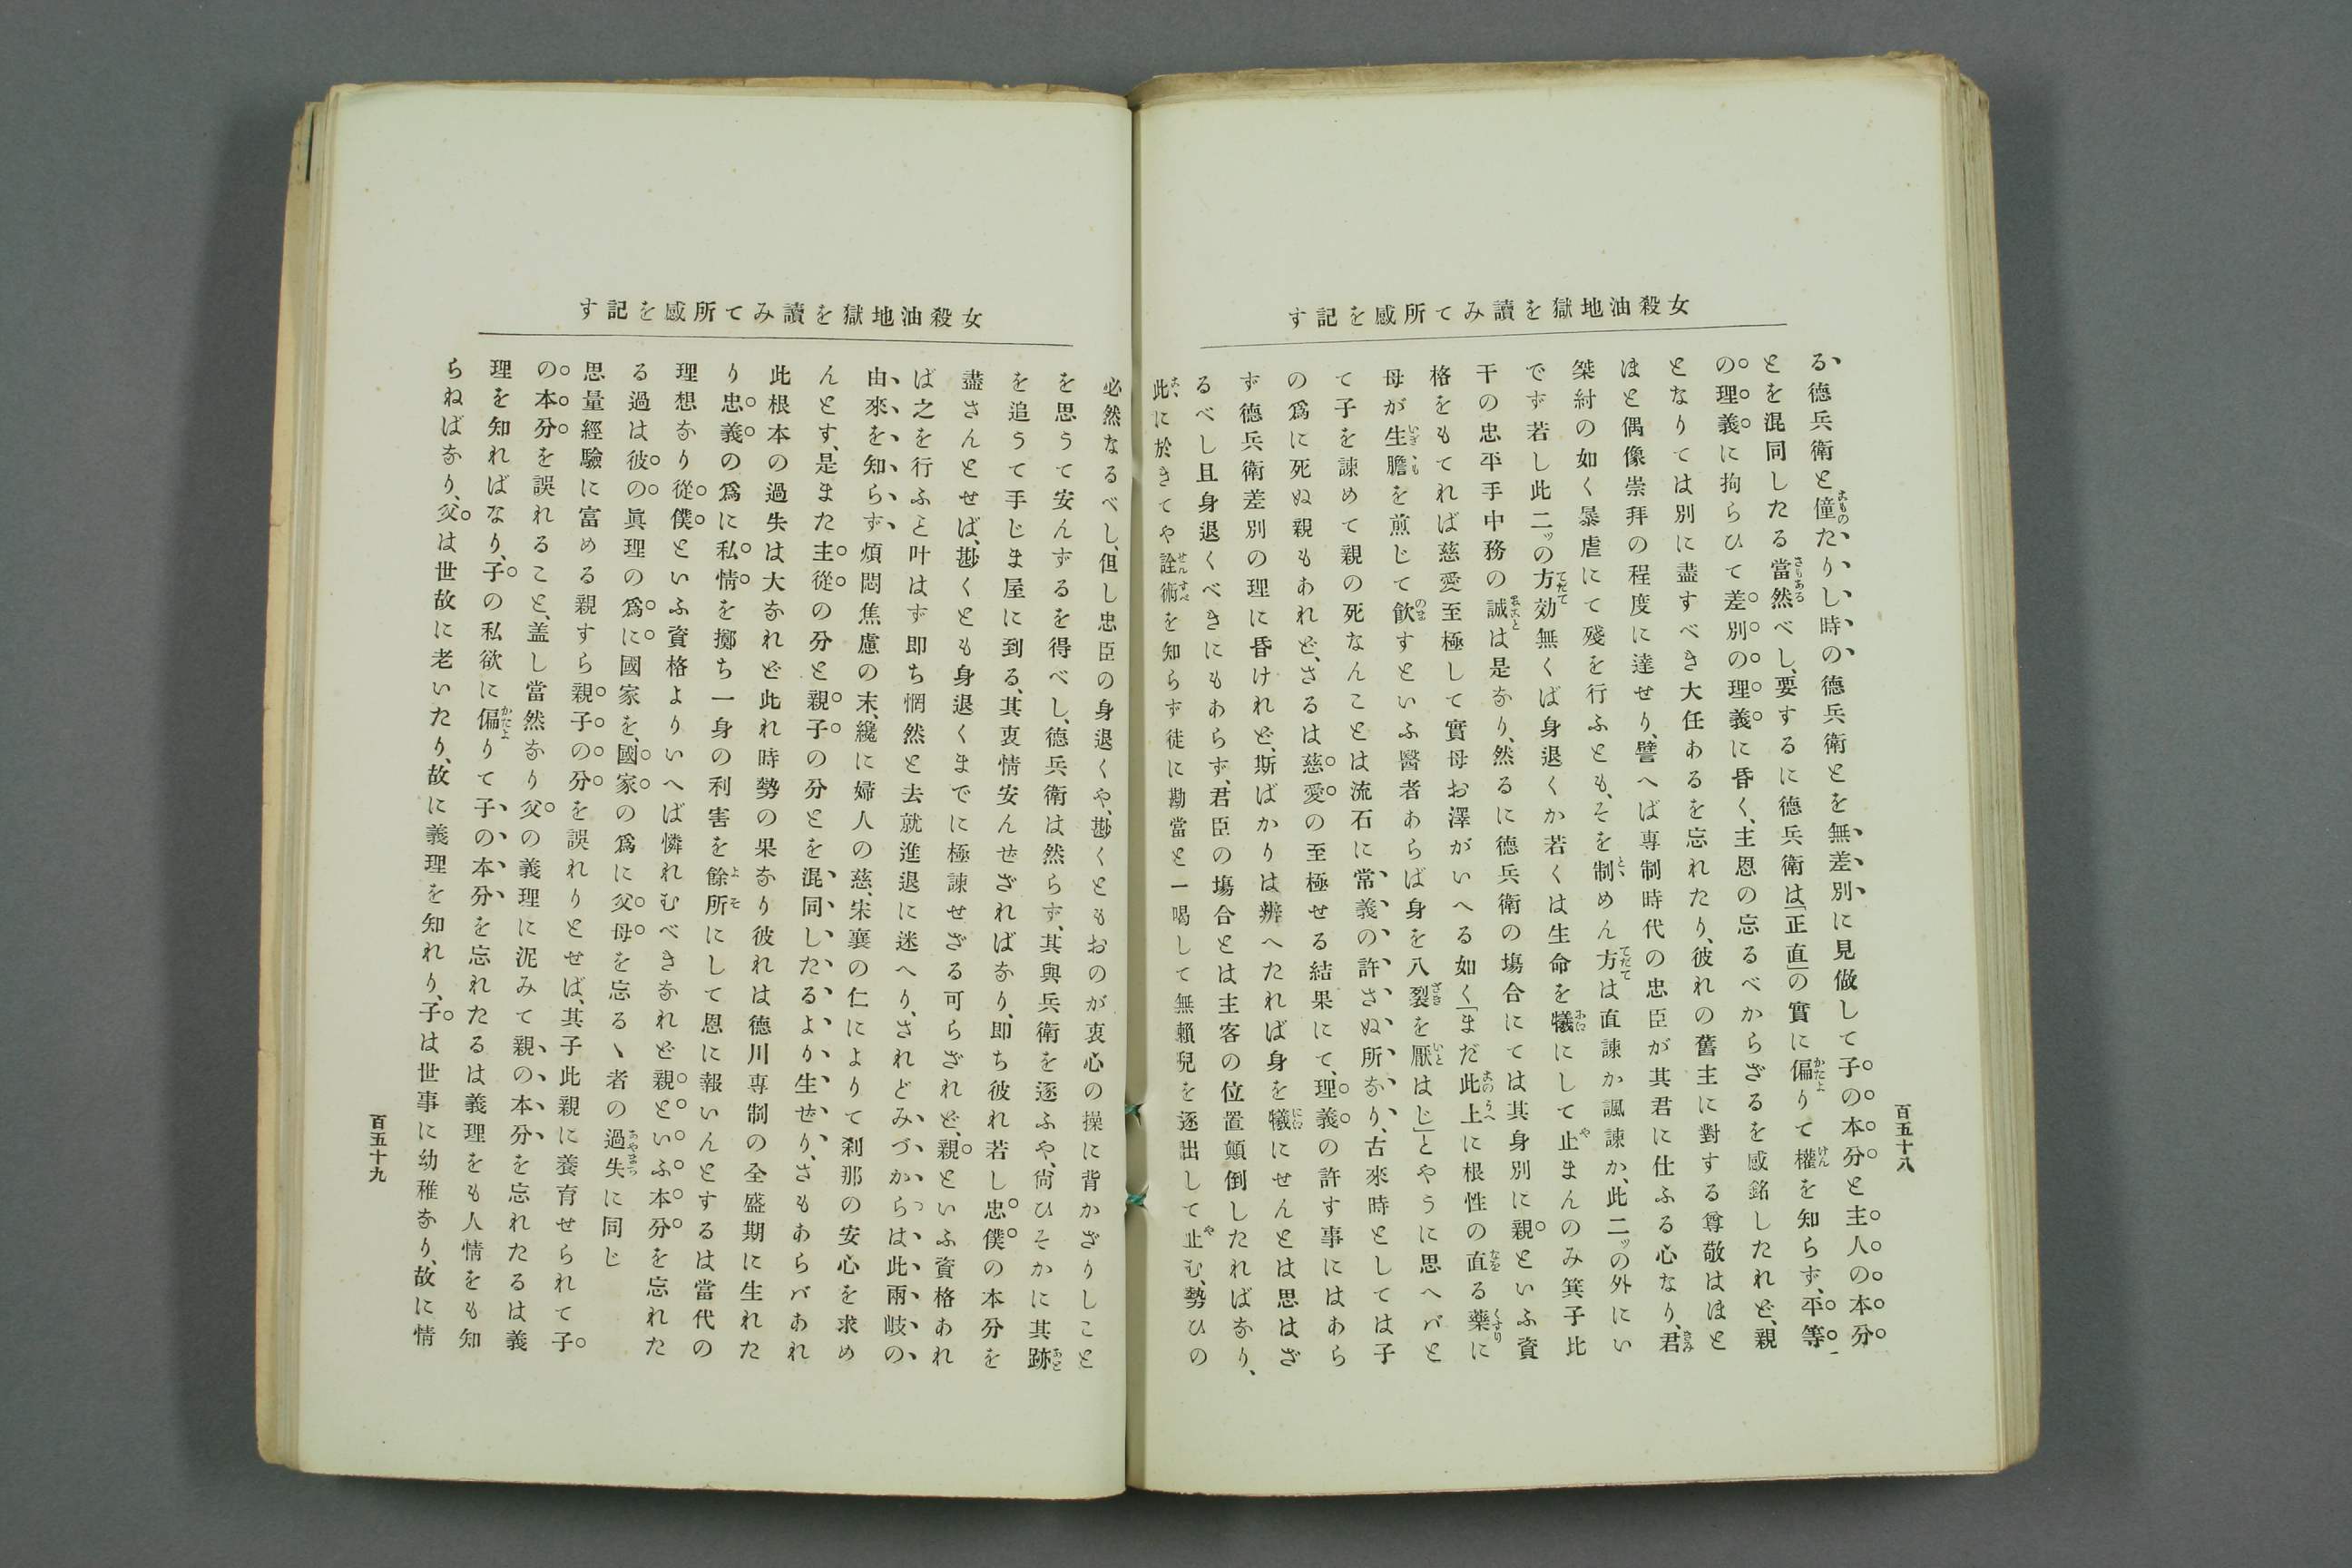 女殺油地獄を讀みて所感を記す
る德兵衛と僮たりし時の德兵衛とを無差別に見做して子の本分と主人の本分
とを混同したる當然べし、要するに德兵衛は「正直」の實に偏りて權を知らず、平等
の理義に拘らひて差別の理義に昏く、主恩の忘るべからざるを感銘したれど、親
となりては別に盡すべき大任あるを忘れたり、彼れの舊主に對する尊敬はほと
ほと偶像崇拜の程度に達せり、譬へば專制時代の忠臣が其君に仕ふる心なり、君
桀紂の如く暴虐にて殘を行ふとも、そを制めん方は直諫か諷諫か、此二ッの外にい
でず若し此二ッの方効無くば身退くか若くは生命を犧にして止まんのみ箕子比
干の忠平手中務の誠は是なり、然るに德兵衛の塲合にては其身別に親といふ資
格をもてれば慈愛至極して實母お澤がいへる如く「まだ此上に根性の直る藥に
母が生膽を煎じて飮すといふ醫者あらば身を八裂を厭はじ」とやうに思へバと
て子を諫めて親の死なんことは流石に、常義の許さぬ所なり、古來時としては子
の爲に死ぬ親もあれど、さるは慈愛の至極せる結果にて、理義の許す事にはあら
ず德兵衛差別の理に昏けれど、斯ばかりは辨へたれば身を犧にせんとは思はざ
るべし且身退くべきにもあらず、君臣の塲合とは主客の位置顚倒したればなり、
此に於きてや詮術を知らず徒に勘當と一喝して無賴兒を逐出して止む、勢ひの
百五十八
女殺油地獄を讀みて所感を記す
必然なるべし、但し忠臣の身退くや、尠くともおのが衷心の操に背かざりしこと
を思うて安んずるを得べし、德兵衛は然らず、其與兵衛を逐ふや、尙ひそかに其跡
を追うて手じま屋に到る、其衷情安んせざればなり、即ち彼れ若し忠僕の本分を
盡さんとせば、尠くとも身退くまでに極諫せざる可らざれど、親といふ資格あれ
ば之を行ふと叶はず即ち惘然と去就進退に迷へり、されどみづからは此兩岐の
由來を知らず、煩悶焦慮の末、纔に婦人の慈、宋襄の仁によりて刹那の安心を求め
んとす、是また主從の分と親子の分とを混同したるより生せり、さもあらバあれ
此根本の過失は大なれど此れ時勢の果なり彼れは德川專制の全盛期に生れた
り忠義の爲に私情を擲ち一身の利害を餘所にして恩に報いんとするは當代の
理想なり從僕といふ資格よりいへば憐れむべきなれど親といふ本分を忘れた
る過は彼の眞理の爲に國家を、國家の爲に父母を忘るヽ者の過失に同じ
思量經驗に富める親すら親子の分を誤れりとせば、其子此親に養育せられて子
の本分を誤れること、盖し當然なり父の義理に泥みて親の本分を忘れたるは義
理を知ればなり、子の私欲に偏りて子の本分を忘れたるは義理をも人情をも知
らねばなり、父は世故に老いたり、故に義理を知れり、子は世事に幼稚なり、故に情
百五十九